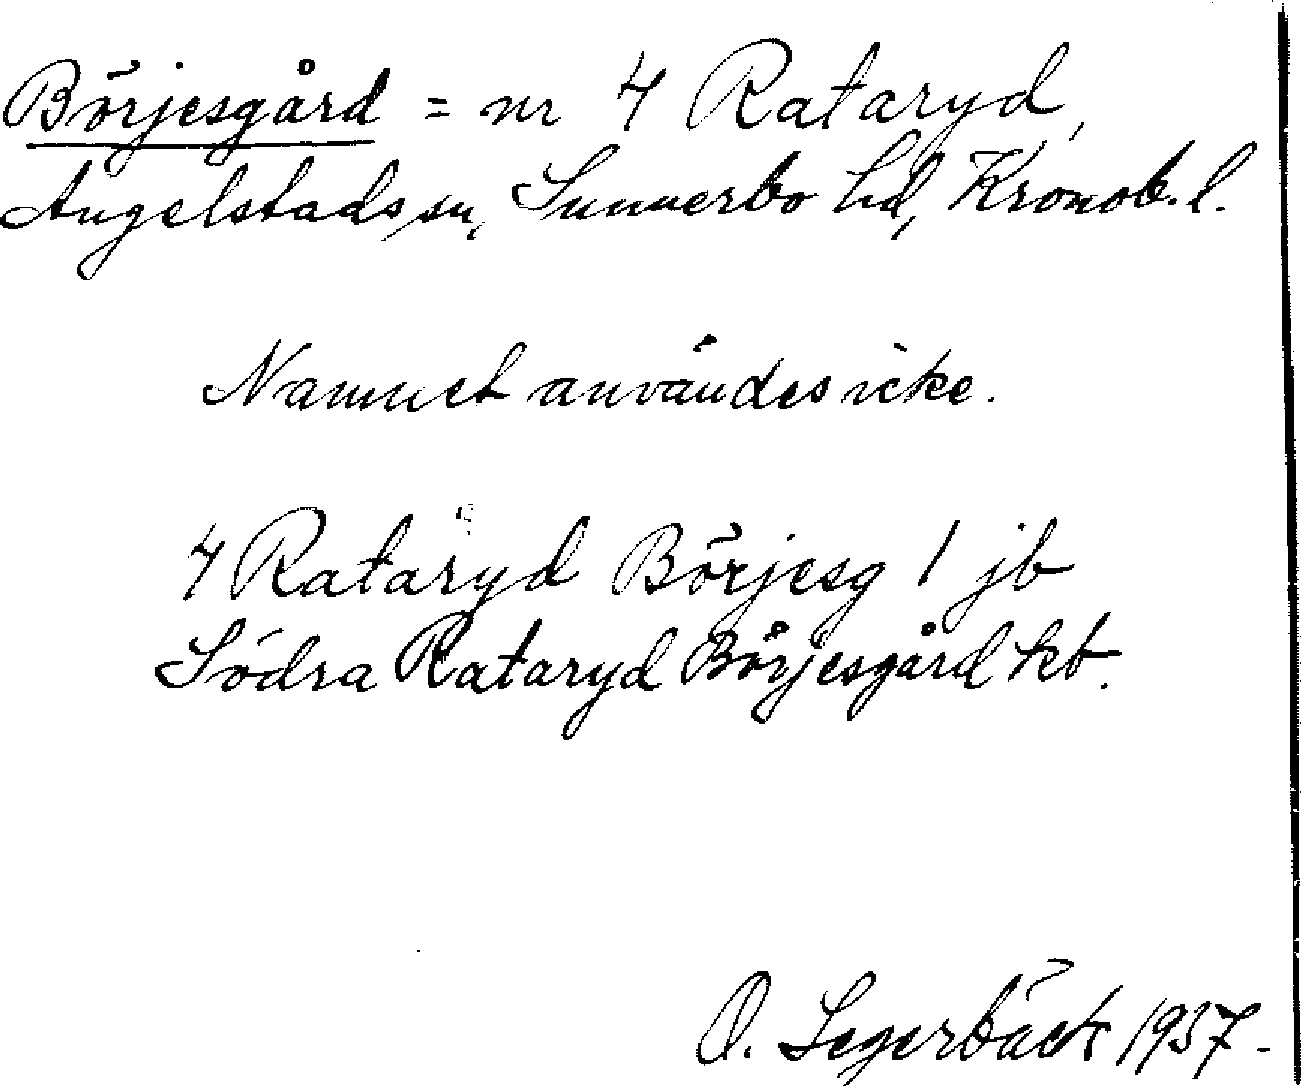 Börjesgård = nr 4 Rataryd,
Angelstads sn, Sunnerbo hd, Kronob. l.
Namnet användes icke.
4 Rataryd Börjesg 1 jb
Södra Rataryd Börjesgård kb.
O. Segerbäck 1937.